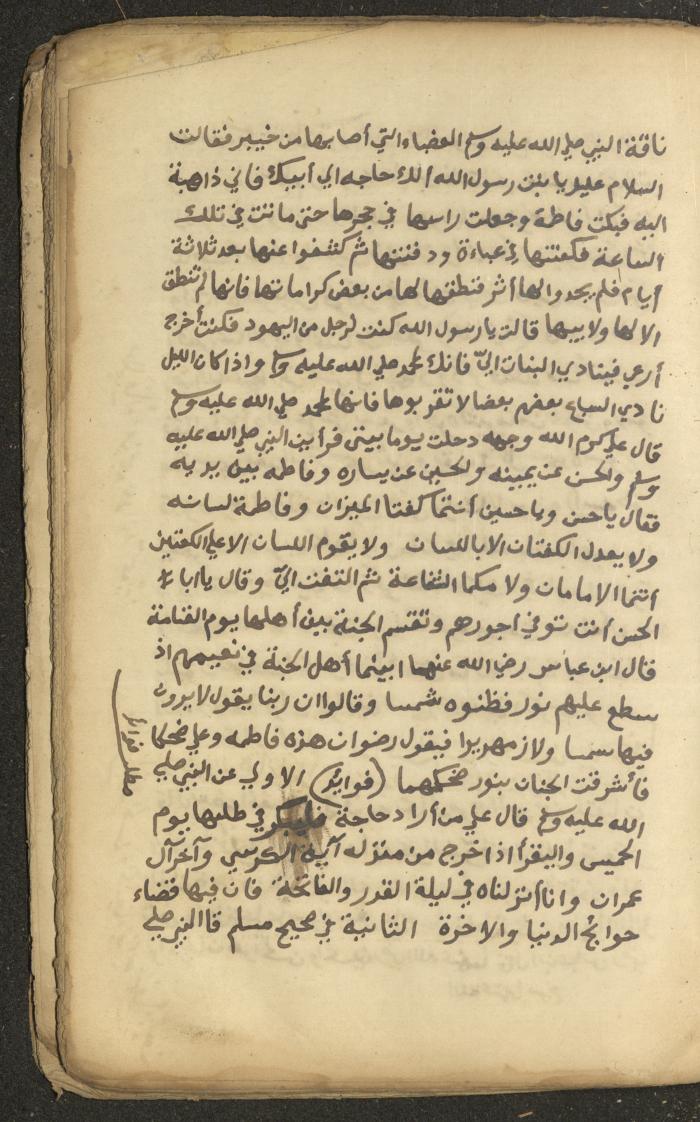 ناقة النبي صلي الله عليه وسلم العضباء التي أصابها من خيبر فقالت
السلام عليك يا بنت رسول الله ألك حاجه الي أبيك فاني ذاهبة
اليه فبكت فاطمة وجعلت راسها في حجرها حتى ماتت في تلك
الساعة فكفنتها في عباءة ودفنتها ثم كشفوا عنها بعد ثلاثة
أيام فلم يجدوا لها أثر فنطقها لها من بعض كراماتها فانها لم تنطق
الا لها ولابيها قالت يا رسول الله كنت لرجل من اليهود فكنت أخرج
أرعي فينادي النبات اليّ فانك لمحمد صلي الله عليه وسلم واذا كان الليل
نادي السباع بعضهم بعضا لا تقربوها فانها لمحمد صلي الله عليه وسلم
قال علي كرم الله وجهه دخلت يوما بيتي فرأيت النبي صلي الله عليه
وسلم والحسن عن يمينه والحسين عن يساره وفاطمه بين يديه
فقال يا حسن ويا حسين أنتما كفتا الميزان وفاطمة لسانه
ولا يعدل الكفتان الا باللسان ولا يقوم اللسان الا علي الكفتين
أنتما الامامان ولامكما الشفاعة ثم التفت اليّ وقال يا ابا
الحسن أنت توفي اجورهم وتقسم الجنة بين أهلها يوم القيامة
قال ابن عباس رضي الله عنهما ابينما أهل الجنة في نعيمهم اذ
سطع عليهم نور فظنوه شمسا وقالوا ان ربنا يقول لا يرون
فيها شمسا ولا زمهريرا فيقول رضوان هذه فاطمه وعلي ضحكا
فأشرقت الجنان بنور ضحكهما (فوايد) الاولي عن النبي صلي
مطلب فوائد
الله عليه وسلم قال علي من أراد حاجة فليبكر في طلبها يوم
الخميس واليقرأ اذا خرج من منزله آية الكرسي وآخر آل
عمران وانا أنزلناه في ليلة القدر والفاتحة فان فيها قضاء
حوائج الدنيا والاخرة الثانية في صحيح مسلم قا النبي صلي